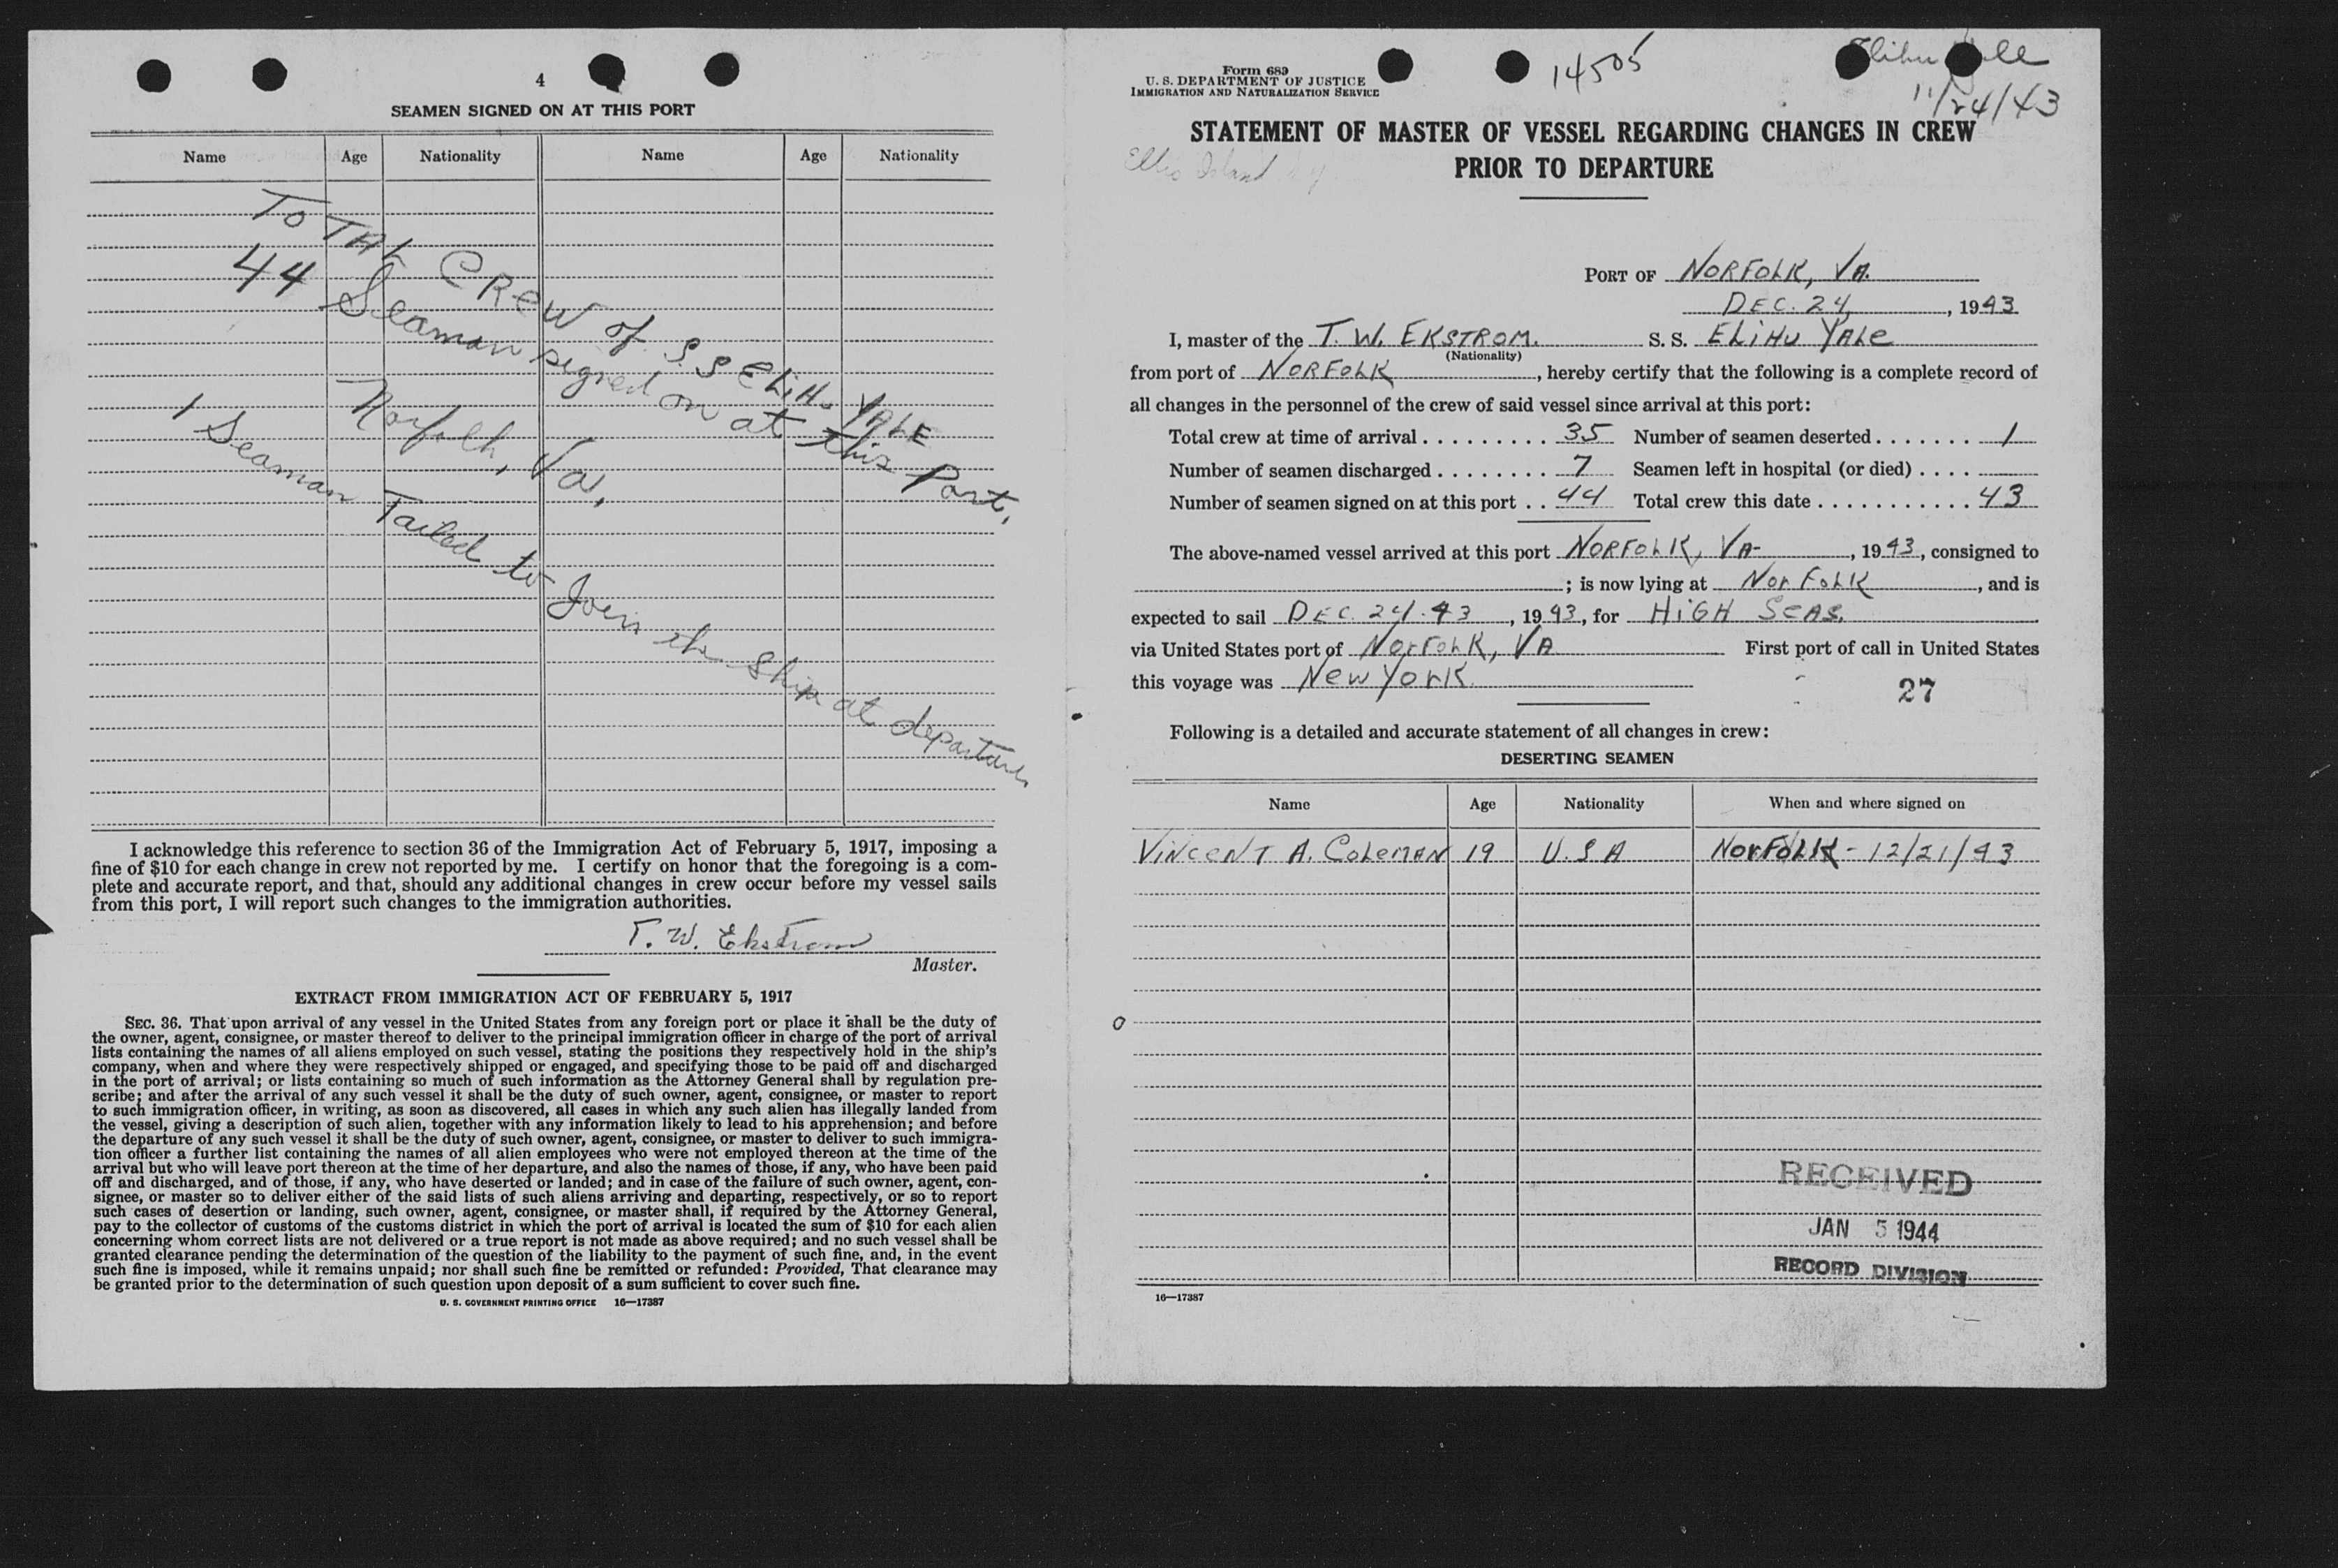 4
SEAMEN SIGNED ON AT THIS PORT
Name Age Nationality Name Age Nationality
TOTAL CREW of S.S ELiHu YALE
44 Seaman signed on at this Port,
Norfolk, Va,
1 Seaman Failed to Join the Ship at departure
I acknowledge this reference to section 36 of the Immigration Act of February 5, 1917, imposing a
fine of $10 for each change in crew not reported by me. I certify on honor that the foregoing is a com-
plete and accurate report, and that, should any additional changes in crew occur before my vessel sails
from this port, I will report such changes to the immigration authorities.
T. W. Ekstrom
Master.
EXTRACT FROM IMMIGRATION ACT OF FEBRUARY 5, 1917
SEC. 36. That upon arrival of any vessel in the United States from any foreign port or place it shall be the duty of
the owner, agent, consignee, or master thereof to deliver to the principal immigration officer in charge of the port of arrival
lists containing the names of all aliens employed on such vessel, stating the positions they respectively hold in the ship's
company, when and where they were respectively shipped or engaged, and specifying those to be paid off and discharged
in the port of arrival; or lists containing so much of such information as the Attorney General shall by regulation pre-
scribe; and after the arrival of any such vessel it shall be the duty of such owner, agent, consignee, or master to report
to such immigration officer, in writing, as soon as discovered, all cases in which any such alien has illegally landed from
the vessel, giving a description of such alien, together with any information likely to lead to his apprehension; and before
the departure of any such vessel it shall be the duty of such owner, agent, consignee, or master to deliver to such immigra-
tion officer a further list containing the names of all alien employees who were not employed thereon at the time of the
arrival but who will leave port thereon at the time of her departure, and also the names of those, if any, who have been paid
off and discharged, and of those, if any, who have deserted or landed; and in case of the failure of such owner, agent, con-
signee, or master so to deliver either of the said lists of such aliens arriving and departing, respectively, or so to report
such cases of desertion or landing, such owner, agent, consignee, or master shall, if required by the Attorney General,
pay to the collector of customs of the customs district in which the port of arrival is located the sum of $10 for each alien
concerning whom correct lists are not delivered or a true report is not made as above required; and no such vessel shall be
granted clearance pending the determination of the question of the liability to the payment of such fine, and, in the event
such fine is imposed, while it remains unpaid; nor shall such fine be remitted or refunded: Provided, That clearance may
be granted prior to the determination of such question upon deposit of a sum sufficient to cover such fine.
U. S. GOVERNMENT PRINTING OFFICE 16—17387
Form 689
U. S. DEPARTMENT OF JUSTICE
IMMIGRATION AND NATURALIZATION SERVICE
14505
Elihu
11/24/43
STATEMENT OF MASTER OF VESSEL REGARDING CHANGES IN CREW
PRIOR TO DEPARTURE
Ellis Island
PORT OF NORFOLK, VA.
DEC. 24, 1943
I, master of the T. W. EKSTROM. S. S. ELiHU YALe
(Nationality)
from port of NORFOLK, hereby certify that the following is a complete record of
all changes in the personnel of the crew of said vessel since arrival at this port:
Total crew at time of arrival . . . . . . . . . 35 Number of seamen deserted . . . . . . . 1
Number of seamen discharged . . . . . . . . 7 Seamen left in hospital (or died) . . . .
Number of seamen signed on at this port . . 44 Total crew this date . . . . . . . . . . . 43
The above-named vessel arrived at this port NORFOLK, VA- , 1943, consigned to
; is now lying at NorFoLK, and is
expected to sail DEC. 24.43, 1943, for HiGH SeAS.
via United States port of NorFoLK, VA First port of call in United States
this voyage was New York.
27
Following is a detailed and accurate statement of all changes in crew:
DESERTING SEAMEN
Name Age Nationality When and where signed on
ViNCeNT A. COLeMAN 19 U.S A NorFoLK - 12/21/43
RECEIVED
JAN 5 1944
RECORD DIVISION
16—17387